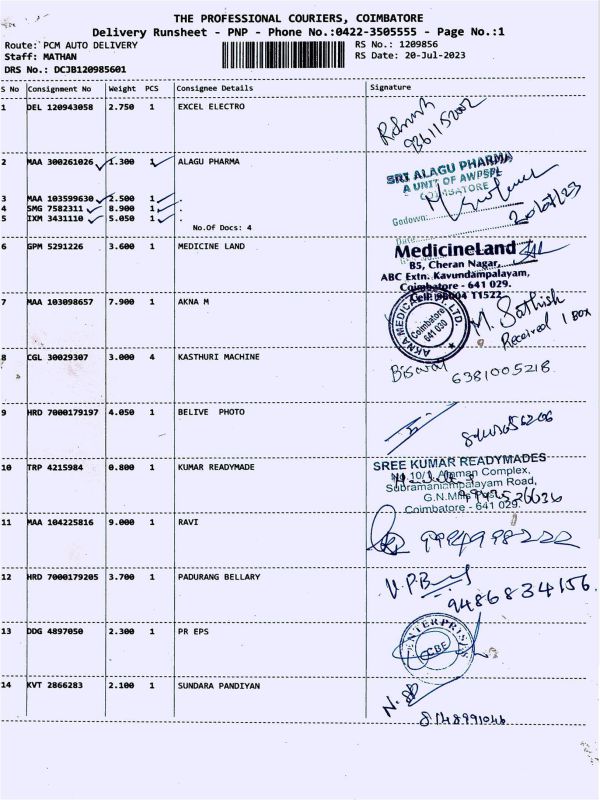 THE PROFESSIONAL COURIERS, COIMBATORE
Delivery Runsheet - PNP - Phone No.:0422-3505555 - Page No.:1
Route: PCM AUTO DELIVERY RS No.: 1209856
Staff: MATHAN RS Date: 20-Jul-2023
DRS No.: DCJB120985601
S No Consignment No Weight PCS Consignee Details Signature
1 DEL 120943058 2.750 1 EXCEL ELECTRO
9361152002
2 MAA 300261026 1.300 1 ALAGU PHARMA
SRI ALAGU PHARMA
A UNIT OF AWPSPL
COIMBATORE
3 MAA 103599630 2.500 1
4 SMG 7582311 8.900 1
Godown:
5 IXM 3431110 5.050 1
No.Of Docs: 4
Date:
6 GPM 5291226 3.600 1 MEDICINE LAND
MedicineLand
85, Cheran Nagar,
ABC Extn. Kavundampalayam,
Coimbatore - 641 029.
Cell: 96004 11522
7 MAA 103098657 7.900 1 AKNA M
AKNA MEDICAL LTD.
Coimbatore
641 030
M. Sathish
Received 1 Box
8 CGL 30029307 3.000 4 KASTHURI MACHINE
6381005218
9 HRD 7000179197 4.050 1 BELIVE PHOTO
10 TRP 4215984 0.800 1 KUMAR READYMADE
SREE KUMAR READYMADES
No.10/1, Complex,
Subramaniampalayam Road,
G.N.Mills
Coimbatore - 641 029.
11 MAA 104225816 9.000 1 RAVI
9994998222
12 HRD 7000179205 3.700 1 PADURANG BELLARY
V.P.B
9486834156
13 DDG 4897050 2.300 1 PR EPS
ENTERPRISES
CBE
14 KVT 2866283 2.100 1 SUNDARA PANDIYAN
8148991046